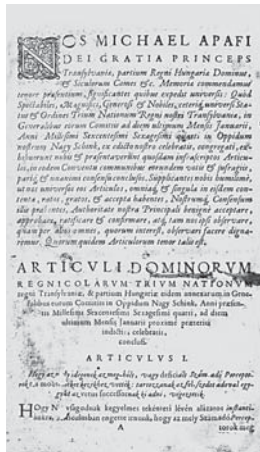 NOS MICHAEL APAFI
DEI GRATIA PRINCEPS
Transylvaniæ, partium Regni Hungariæ Dominus,
& Siculorum Comes &c. Memoriæ commendamus
tenore præsentium, significantes quibus expedit universis: Quòd
Spectabiles, Magnifici, Generosi & Nobiles, cæteriq; universi Sta-
tus & Ordines Trium Nationum Regni nostri Transylvaniæ, in
Generalibus eorum Comitiis ad diem ultimum Mensis Januarii,
Anni Millesimi Sexcentesimi Sexagesimi quarti in Oppidum
nostrum Nagy Schink, ex edicto nostro celebratis, congregati, ex-
hibuerunt nobis & præsentaverunt quosdam infrascriptos Articu-
los, in eodem Conventu communibus eorundem votis & suffragiis,
pariq; & unanimi consensu conclusos, Supplicantes nobis humillimè,
ut nos universos eos Articulos, omniaq; & singula in eisdem con-
tenta, ratos, gratos, & accepta habentes, Nostrumq; Consensum
illis præbentes, Authoritate nostra Principali benignè acceptare,
approbare, ratificare & confirmare, atq; tam nos ipsi observare,
quam per alios omnes, quorum interest, observari facere digna-
remur. Quorum quidem Articulorum tenor talis est.
ARTICULI DOMINORUM
REGNICOLARUM TRIUM NATIONUM
regni Transylvaniæ, & partium Hungariæ eidem annexarum in Gene-
ralibus eorum Comitiis in Oppidum Nagy Schink, Anni præsen-
tis Millesimi Sexcentesimi Sexagesimi quarti, ad diem
ultimum Mensis Januarii proximè præteriti
indictis; celebratis,
conclusi.
ARTICULUS I.
Hogy az
HOGY Nagyságodnak kegyelmes tekénteti lévén alázatos instantiánkra,
A